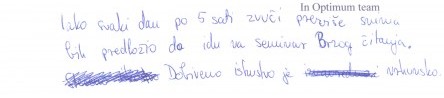 In Optimum team
Iako svaki dan po 5 sati zvuči previše svima
bih predložio da idu na seminar Brzog čitanja.
Dobiveno iskustvo je vrhunsko.